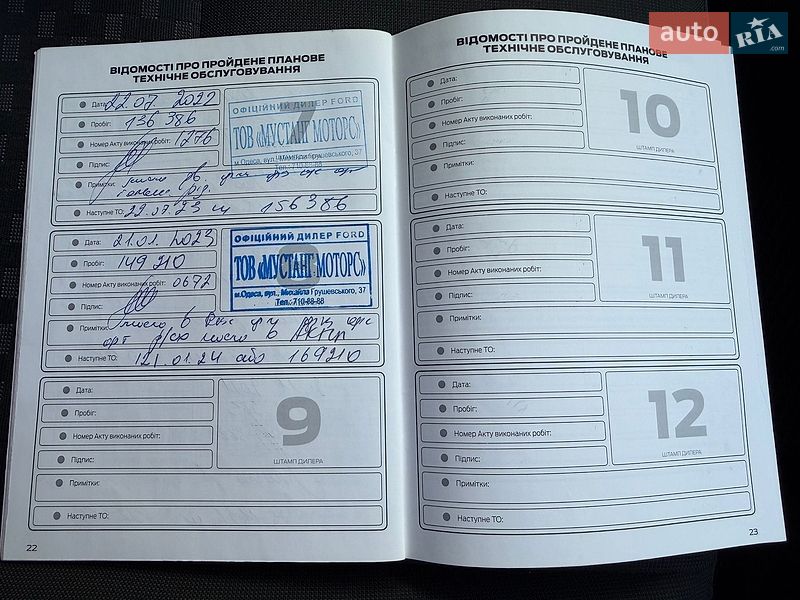 ВІДОМОСТІ ПРО ПРОЙДЕНЕ ПЛАНОВЕ
ТЕХНІЧНЕ ОБСЛУГОВУВАННЯ
Дата: 22.07 2022
Пробіг: 136 386
Номер Акту виконаних робіт: 1276
Підпис:
7
ОФІЦІЙНИЙ ДИЛЕР FORD
ТОВ «МУСТАНГ МОТОРС»
м.Одеса, вул. Михайла Грушевського, 37
Тел.: 710-88-88
Примітки: масло
Наступне ТО: 22.07.23 156386
Дата: 21.01. 2023
Пробіг: 149210
Номер Акту виконаних робіт: 0672
Підпис:
ОФІЦІЙНИЙ ДИЛЕР FORD
ТОВ «МУСТАНГ МОТОРС»
м.Одеса, вул., Михайла Грушевського, 37
Тел.: 710-88-88
Примітки: масло в
масло в АКПП
Наступне ТО: 21.01.24 або 169210
Дата:
Пробіг:
Номер Акту виконаних робіт:
Підпис:
9
ШТАМП ДИЛЕРА
Примітки:
Наступне ТО:
22
ВІДОМОСТІ ПРО ПРОЙДЕНЕ ПЛАНОВЕ
ТЕХНІЧНЕ ОБСЛУГОВУВАННЯ
Дата:
Пробіг:
Номер Акту виконаних робіт:
Підпис:
10
ШТАМП ДИЛЕРА
Примітки:
Наступне ТО:
Дата:
Пробіг:
Номер Акту виконаних робіт:
Підпис:
11
ШТАМП ДИЛЕРА
Примітки:
Наступне ТО:
Дата:
Пробіг:
Номер Акту виконаних робіт:
Підпис:
12
ШТАМП ДИЛЕРА
Примітки:
Наступне ТО:
23
auto RIA .com